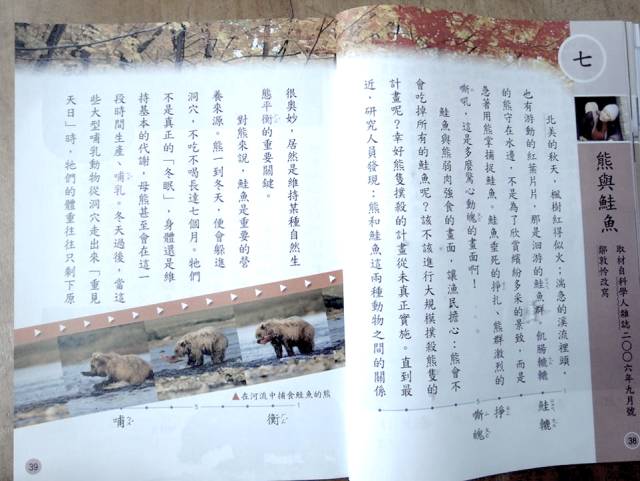 七
熊與鮭魚
取材自科學人雜誌二〇〇六年九月號
鄒敦怜改寫
北美的秋天，楓樹紅得似火；湍急的溪流裡頭，
也有游動的紅葉片片，那是洄游的鮭魚群。飢腸轆轆
的熊守在水邊，不是為了欣賞繽紛多采的景致，而是
急著用熊掌捕捉鮭魚。鮭魚垂死的掙扎、熊群激烈的
嘶吼，這是多麼驚心動魄的畫面啊！
鮭魚與熊弱肉強食的畫面，讓漁民擔心：熊會不
會吃掉所有的鮭魚呢？該不該進行大規模撲殺熊隻的
計畫呢？幸好熊隻撲殺的計畫從未真正實施。直到最
近，研究人員發現：熊和鮭魚這兩種動物之間的關係
鮭
轆
掙
嘶
魄
38
很奧妙，居然是維持某種自然生
態平衡的重要關鍵。
對熊來說，鮭魚是重要的營
養來源。熊一到冬天，便會躲進
洞穴，不吃不喝長達七個月。牠們
不是真正的「冬眠」，身體還是維
持基本的代謝，母熊甚至會在這一
段時間生產、哺乳。冬天過後，當這
些大型哺乳動物從洞穴走出來「重見
天日」時，牠們的體重往往只剩下原
▲在河流中捕食鮭魚的熊
衡
哺
39